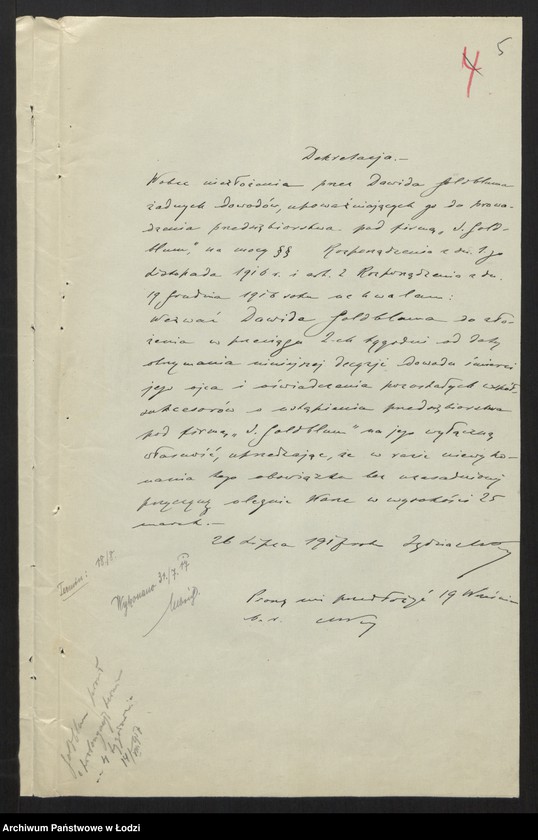 5
4
Dekretacja.—
Wobec niezłożenia przez Dawida Goldbluma
żadnych dowodów, upoważniających go do prowa-
dzenia przedsiębiorstwa pod firmą „S. Gold-
blum", na mocy §§ Rozporządzenia z dn. 1go
Listopada 1916 r. i art. 2 Rozporządzenia z dn.
19 Grudnia 1916 roku uchwalam:
Wezwać Dawida Goldbluma do zło-
żenia w przeciągu 2-ch tygodni od daty
otrzymania niniejszej decyzji dowodu śmierci
jego ojca i oświadczenia pozostałych współ-
sukcesorów o ustąpieniu przedsiębiorstwa
pod firmą „S. Goldblum" na jego wyłączną
własność, uprzedzając, że w razie niewyko-
nania tego obowiązku bez uzasadnionej
przyczyny ulegnie karze w wysokości 25
marek.—
26 Lipca 1917 roku
Termin: 18/8.
Wykonano 31./7. 17
Proszę mi przedłożyć 19 Września
b. r.
Goldblum prosił
o prolongację termin
na 4 tygodnie
Archiwum Państwowe w Łodzi